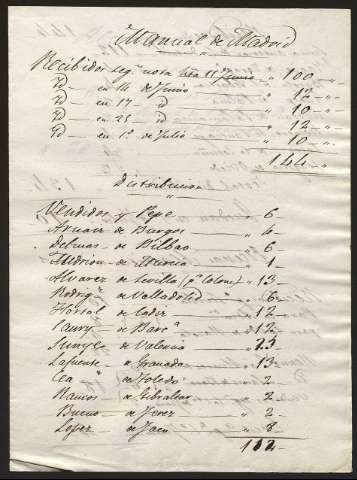 Manual de Madrid
Recibidos seg.n nota 11 Junio " 100
Yd en 14 de Junio " 12
Yd en 17 D " 10
Yd en 23 D " 12
Yd en 1.º de Julio " 10
144
Distribucion
Vendidos y Pepe " 6
Arnaiz de Burgos " 6
Delmas de Bilbao " 6
de Murcia " 1
Alvarez de Sevilla (p.a Colon) " 13
Rodrig.z de Valladolid " 6
Hortal de Cadiz " 12
Paury de Barc.a " 12
de Valencia 23
Lafuente de Granada " 13
Cea de Toledo " 2
Ramos de Gibraltar " 2
Bueno de Jerez " 2
Lopez de Jaen " 8
112